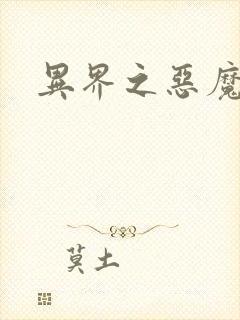 異界之惡魔
莫土